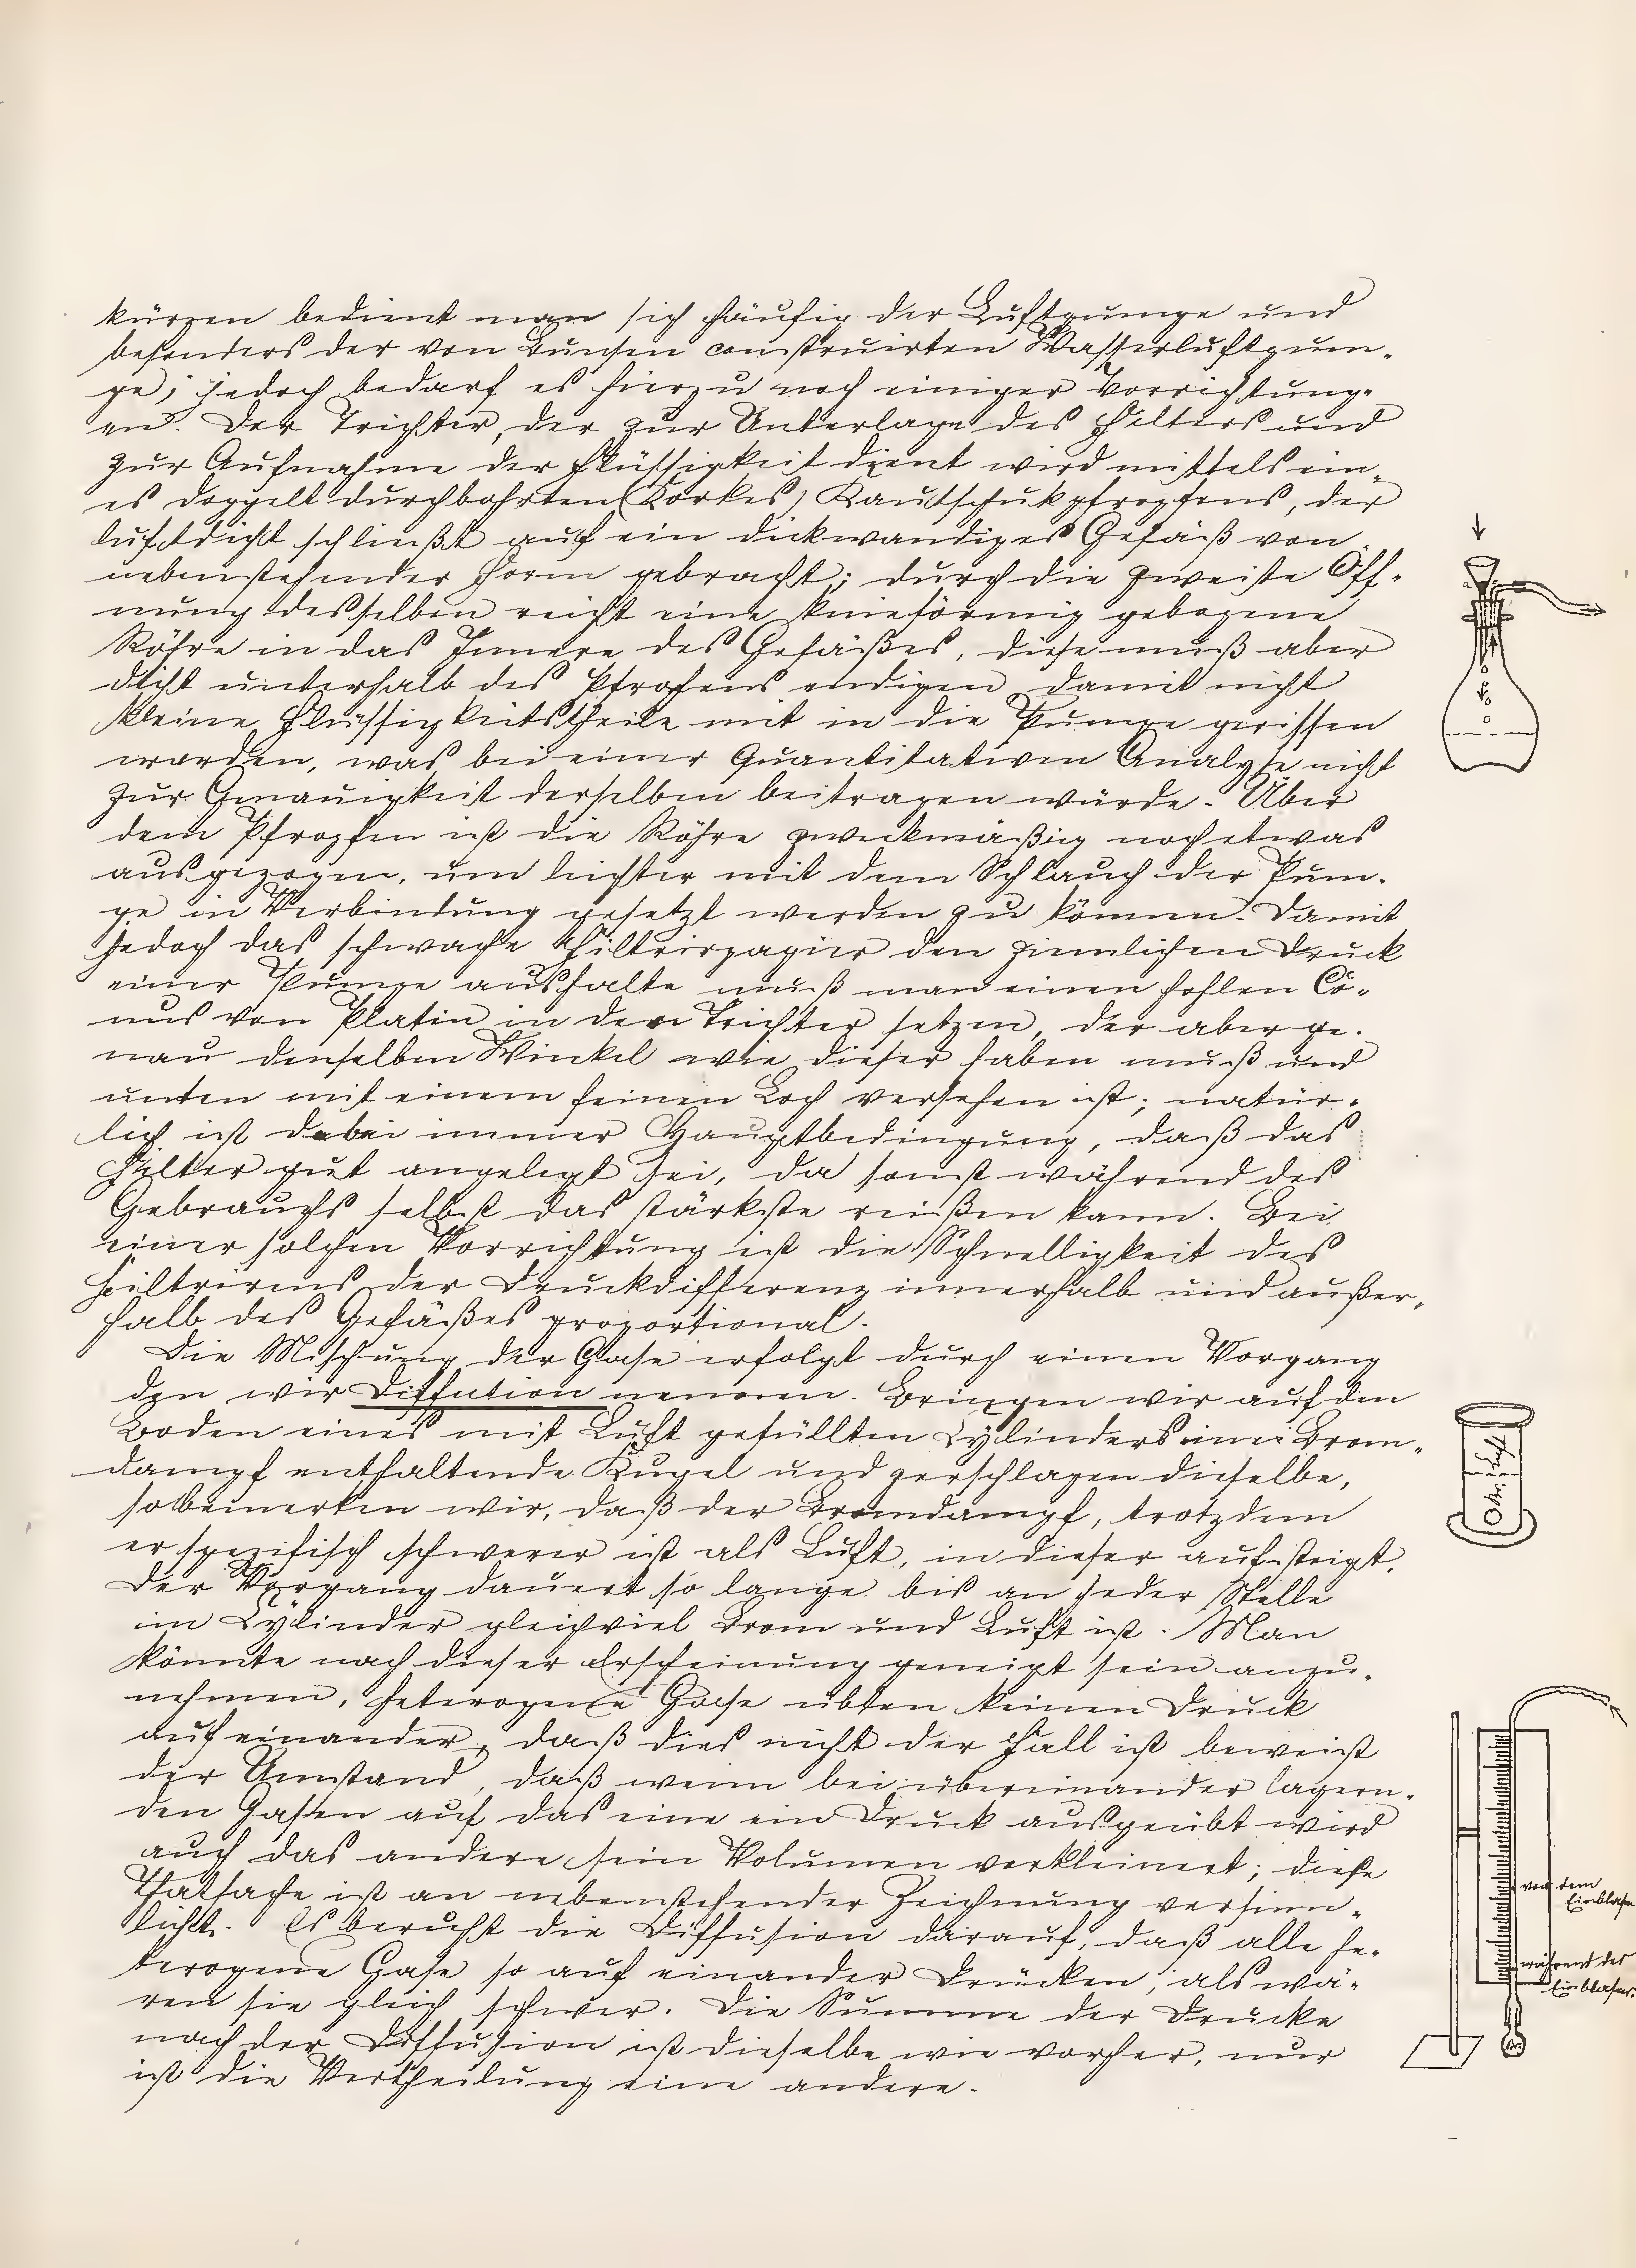 kürzen bedient man sich häufig der Luftpumpe und
besonders der von Bunsen construirten Wasserluftpum-
pe; jedoch bedarf es hierzu noch einiger Vorrichtung-
en. Der Trichter, der zur Unterlage des Filters und
zur Aufnahme der Flüssigkeit dient wird mittels ein-
es doppelt durchbohrten (Korkes) Kautschukpfropfens, der
luftdicht schließt auf ein dickwandiges Gefäß von
nebenstehender Form gebracht; durch die zweite Öff-
nung desselben reicht eine knieförmig gebogene
Röhre in das Innere des Gefäßes, diese muß aber
dicht unterhalb des Pfrofens endigen damit nicht
kleine Flüssigkeitstheile mit in die Pumpe gerissen
werden, was bei einer quantitativen Analyse nicht
zur Genauigkeit derselben beitragen würde. Über
dem Pfropfen ist die Röhre zweckmäßig noch etwas
ausgezogen, um leichter mit dem Schlauch der Pum-
pe in Verbindung gesetzt werden zu können. Damit
jedoch das schwache Filtrirpapier den ziemlichen Druck
einer Pumpe aushalte muß man einen hohlen Co-
nus von Platin in den Trichter setzen, der aber ge-
nau denselben Winkel wie dieser haben muß und
unten mit einem feinen Loch versehen ist; natür-
lich ist dabei immer Hauptbedingung, daß das
Filter gut angelegt sei, da sonst während des
Gebrauchs selbst das stärkste reißen kann. Bei
einer solchen Vorrichtung ist die Schnelligkeit des
Filtrirens der Druckdifferenz innerhalb und außer-
halb des Gefäßes proportional.
Die Mischung der Gase erfolgt durch einen Vorgang
den wir Diffution nennen. Bringen wir auf den
Boden eines mit Luft gefüllten Cylinders eine Brom-
dampf enthaltende Kugel und zerschlagen dieselbe,
so bemerken wir, daß der Bromdampf, trotzdem
er spezifisch schwerer ist als Luft, in dieser aufsteigt.
Der Vorgang dauert so lange bis an jeder Stelle
im Cylinder gleichviel Brom und Luft ist. Man
könnte nach dieser Erscheinung geneigt sein anzu-
nehmen, heterogene Gase übten keinen Druck
auf einander, daß dies nicht der Fall ist beweist
der Umstand, daß wenn bei übereinander lagern-
den Gasen auf das eine ein Druck ausgeübt wird
auch das andere sein Volumen verkleinert; diese
Thatsache ist an nebenstehender Zeichnung versinn-
licht. Es beruht die Diffusion darauf, daß alle he-
terogene Gase so auf einander drücken, als wä-
ren sie gleich schwer. Die Summe der Drucke
nach der Diffusion ist dieselbe wie vorher, nur
ist die Vertheilung eine andere.
Luft
Br.
vor dem
Einblasen
während des
Einblasens.